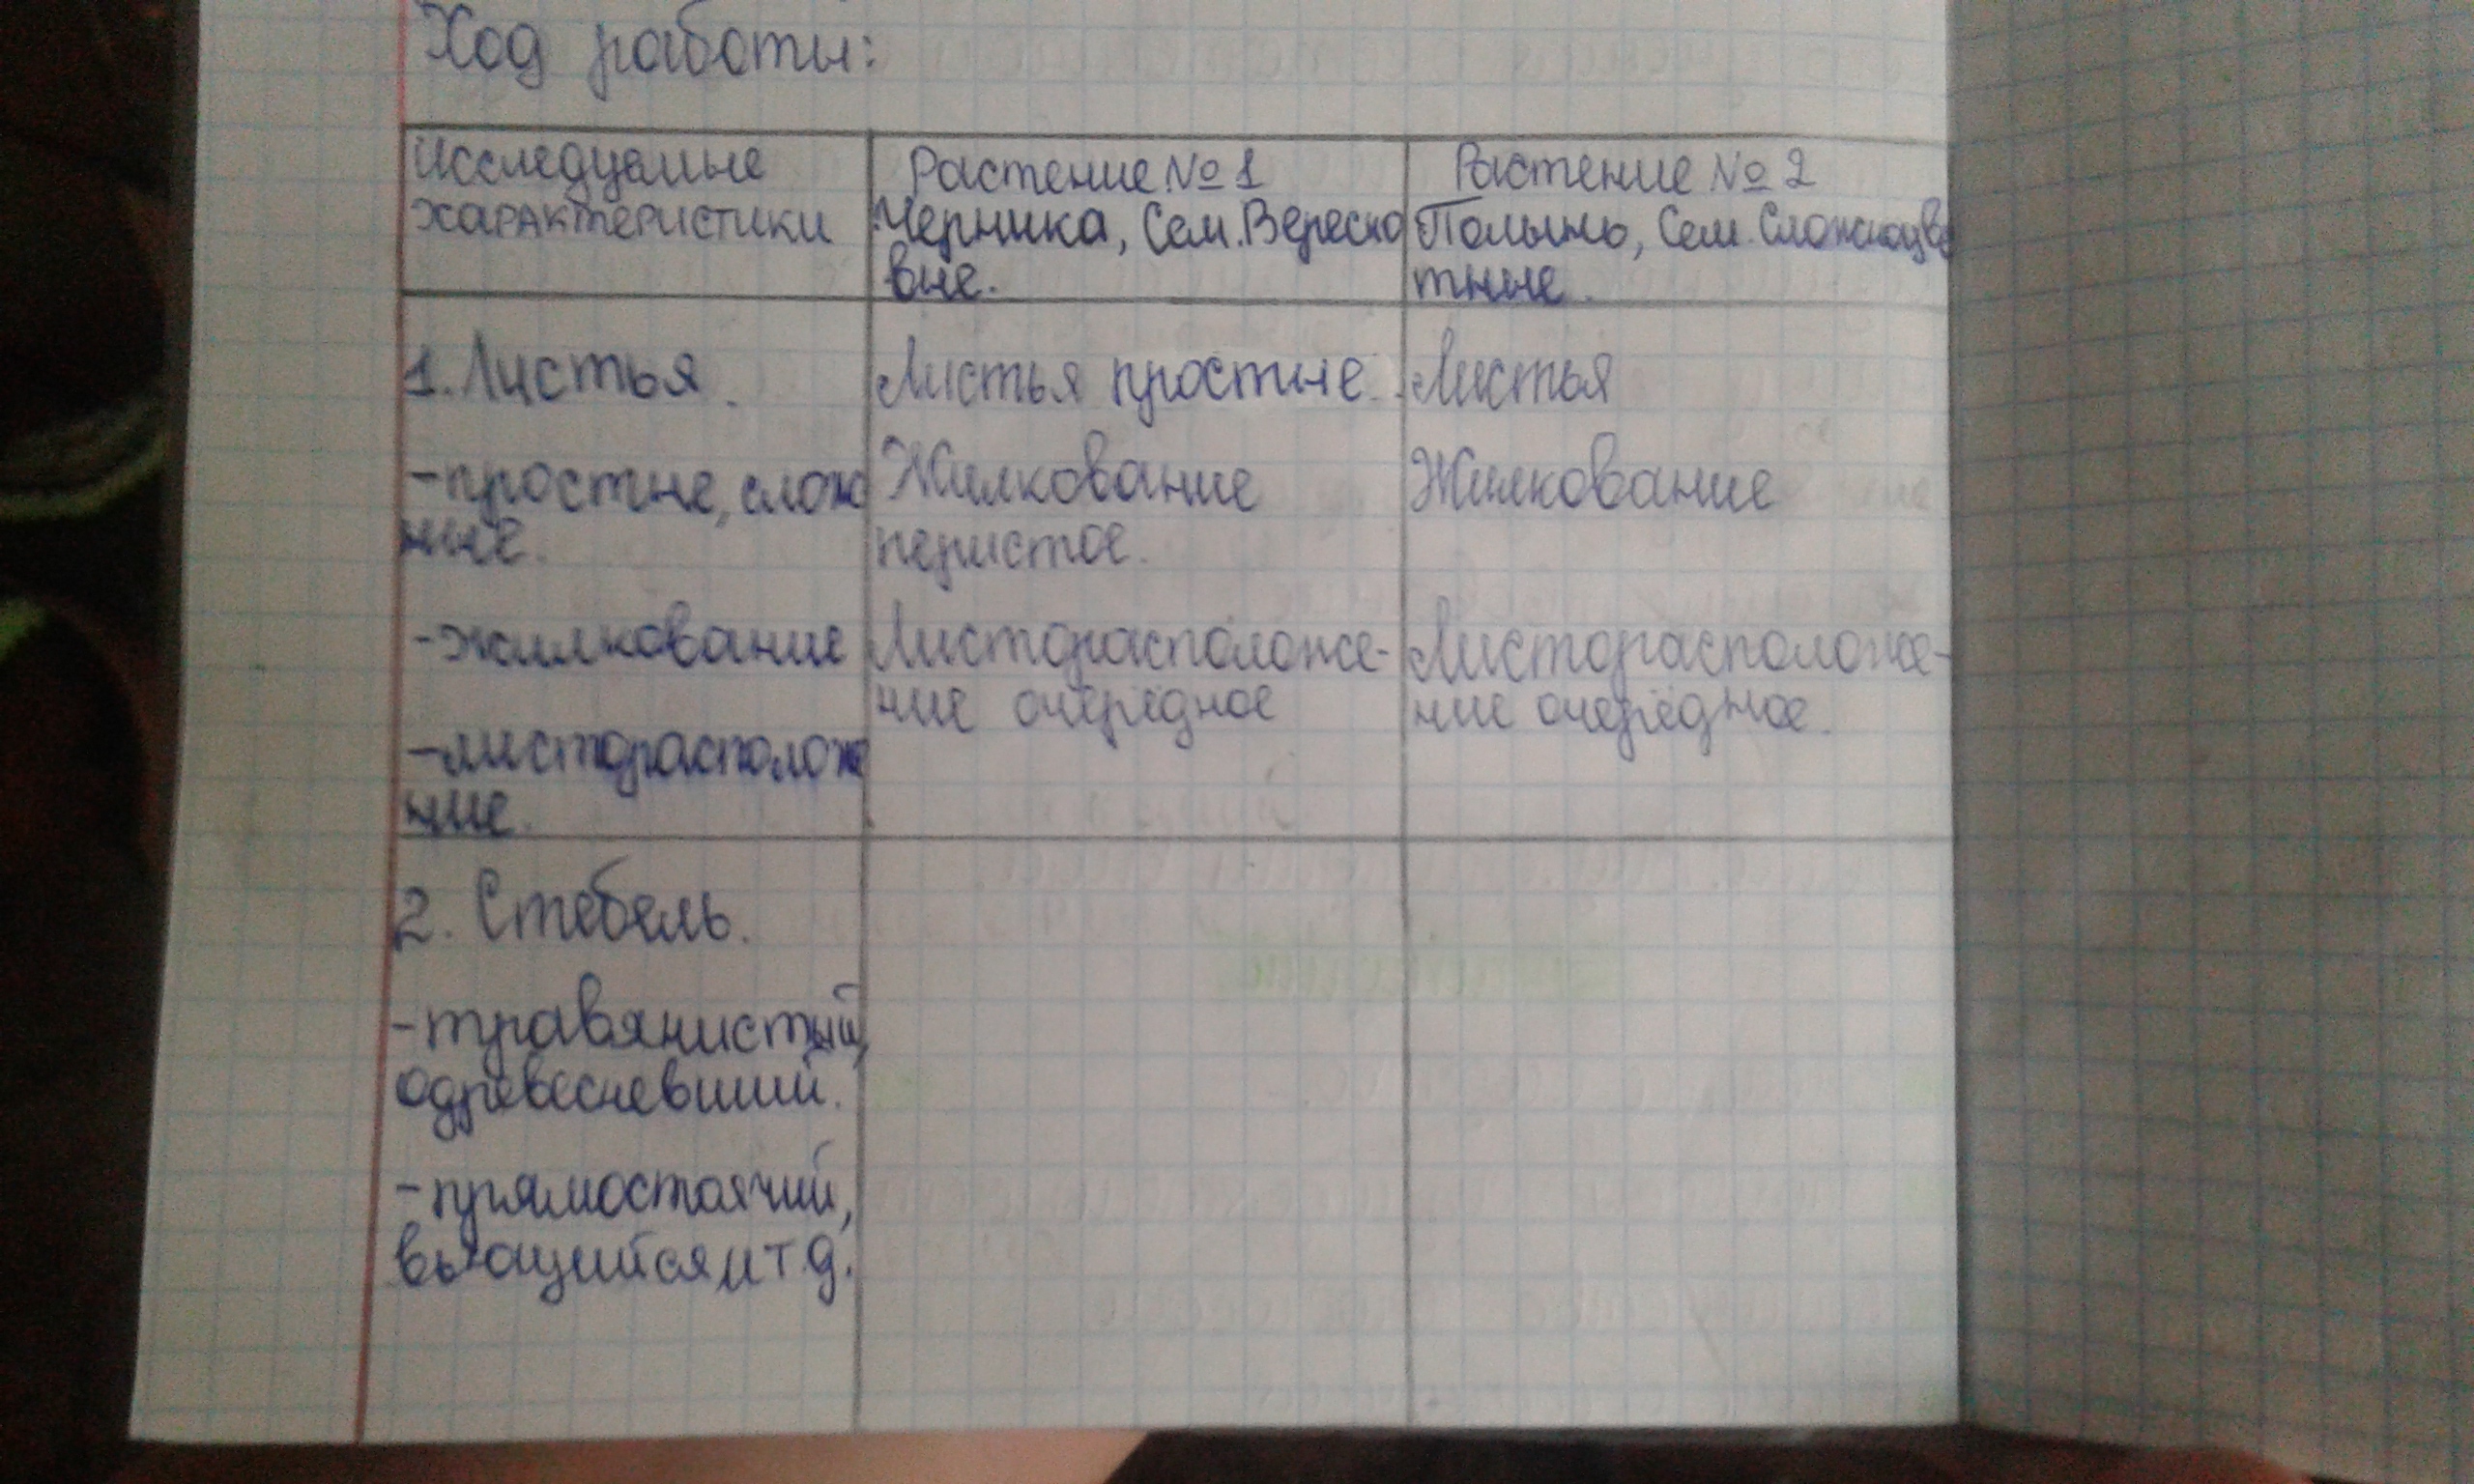 Ход работы:
Исследуемые
характеристики
Растение №1
Черника, Сем. Вереско
вые.
Растение №2
Полынь, Сем. Сложноцве
тные.
1. Листья.
-простые, слож
ные.
-жилкование
-листорасположе
ние.
Листья простые.
Жилкование
перистое.
Листорасположе-
ние очередное
Листья
Жилкование
Листорасположе-
ние очередное.
2. Стебель.
-травянистый,
одревесневший.
-прямостоячий,
вьющийся и т д.